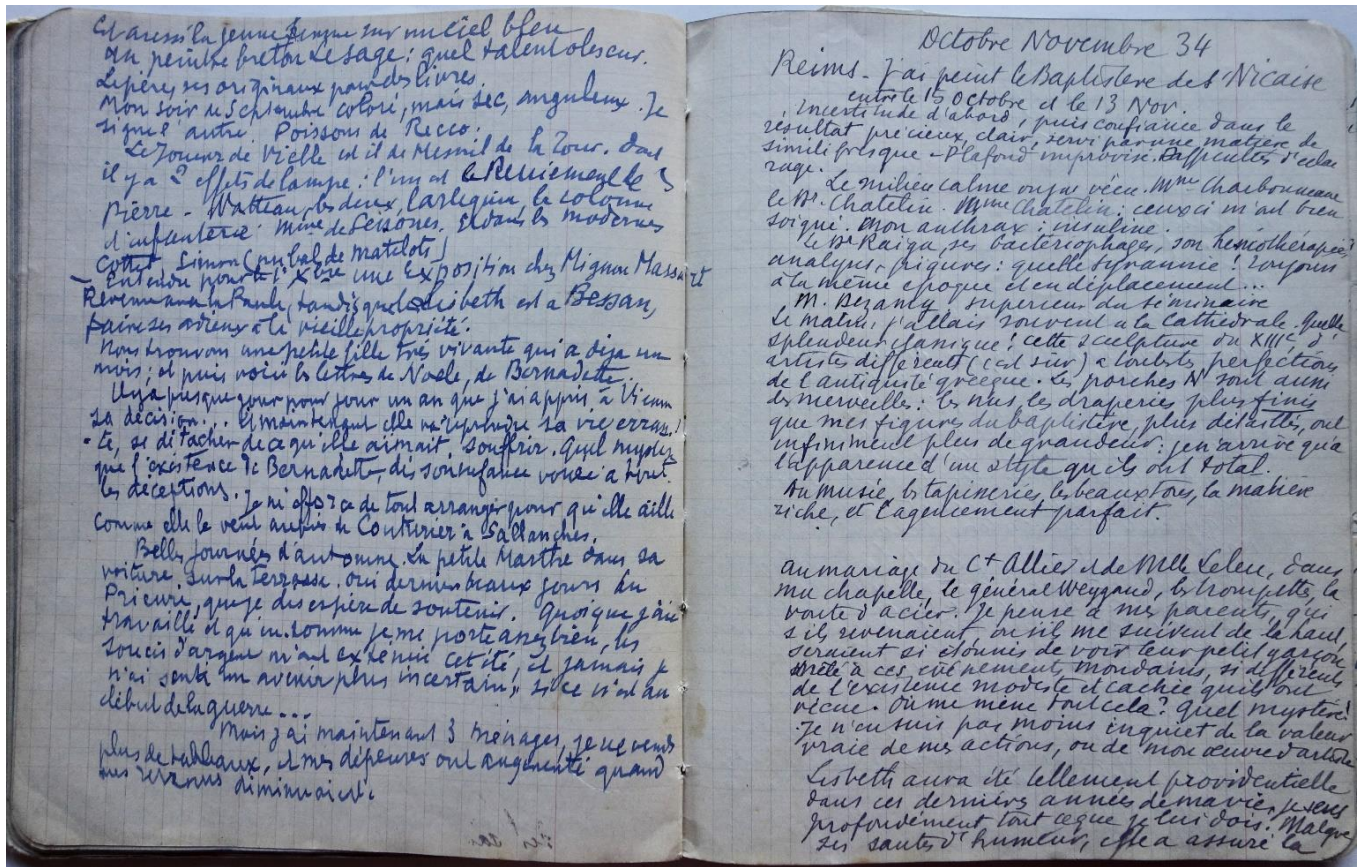 et aussi la jeune femme sur un ciel bleu
du peintre breton Lesage : quel talent obscur.
Lepère, ses originaux pour des livres.
Mon soir de Septembre coloré, mais sec, anguleux. Je
signe l'autre. Poissons de Recco.
Le Joueur de Vielle est il de Mesnil de la Tour. Dont
il y a 2 effets de lampe : l'un est le Reniement de St
Pierre - Watteau, les deux, l'arlequin, la colonne
d'infanterie. Mme de Seisones. Et dans les modernes
Cottet Simon (un bal de matelots)
- Entendu pour le 1er Xbre une Exposition chez Mignon Massart
Revenu avec la Paule, tandis que Lisbeth est à Bessan,
faire ses adieux à la vieille propriété.
Nous trouvons une petite fille très vivante qui a déjà un
mois ; et puis voici les lettres de Noële, de Bernadette.
Il y a presque jour pour jour un an que j'ai appris à Vienne
sa décision... et maintenant elle va reprendre sa vie erran-
te, se détacher de ce qu'elle aimait, souffrir. Quel mystère
que l'existence de Bernadette, dès son enfance vouée à tout.
les déceptions. Je m'efforce de tout arranger pour qu'elle aille
comme elle le veut auprès de Couturier à Sallanches.
Belles journées d'automne. La petite Marthe dans sa
voiture, sur la terrasse. Oui derniers beaux jours du
Prieuré, que je désespère de soutenir. Quoique j'aie
travaillé et qu'en somme je me porte assez bien, les
soucis d'argent m'ont exténué cet été, et jamais je
n'ai senti un avenir plus incertain, si ce n'est au
début de la guerre...
Mais j'ai maintenant 3 ménages, je ne vends
plus de tableaux, et mes dépenses ont augmenté quand
mes revenus diminuaient.
Octobre Novembre 34
Reims - J'ai peint le Baptistère de St Nicaise
entre le 15 octobre et le 13 Nov.
Incertitude d'abord, puis confiance dans le
résultat précieux, clair, servi par une matière de
simili fresque - Plafond improvisé. Difficultés d'éclai
rage.
Le milieu calme où j'ai vécu. Mme Charbonneaux
le Dr. Chatelin. Mme Chatelin : ceux ci m'ont bien
soigné. Mon anthrax : insuline.
Le Dr Raiga, ses bactériophages, son hémothérapie,
analyses, piqures : quelle tyrannie ! Toujours
à la même époque et en déplacement...
M. Bezancy supérieur du séminaire
Le matin, j'allais souvent à la Cathédrale. Quelle
splendeur classique ! cette sculpture du XIIIe, d'
artistes différents (c'est sûr) a toutes les perfections
de l'antiquité grecque. Les porches N sont aussi
des merveilles : les nus, les draperies plus finis
que mes figures du baptistère, plus détaillés, ont
infiniment plus de grandeur : j'en arrive qu'à
l'apparence d'un style qu'ils ont total.
Au musée, les tapisseries, les beaux tons, la matière
riche, et l'agencement parfait.
au mariage du Ct Allier et de Mlle Leleu, dans
ma chapelle, le général Weygand, les trompettes, la
voûte d'acier. Je pense à mes parents, qui
s'ils revenaient, ou s'ils me suivent de là haut,
seraient si étonnés de voir leur petit garçon
mêlé à ces évènements mondains, si différents
de l'existence modeste et cachée qu'ils ont
vécue. Où me mène tout cela ? Quel mystère !
Je n'en suis pas moins inquiet de la valeur
vraie de mes actions, ou de mon œuvre d'artiste
Lisbeth aura été tellement providentielle
dans ces dernières années de ma vie, je sens
profondément tout ce que je lui dois. Malgré
ses sautes d'humeur, elle a assuré la